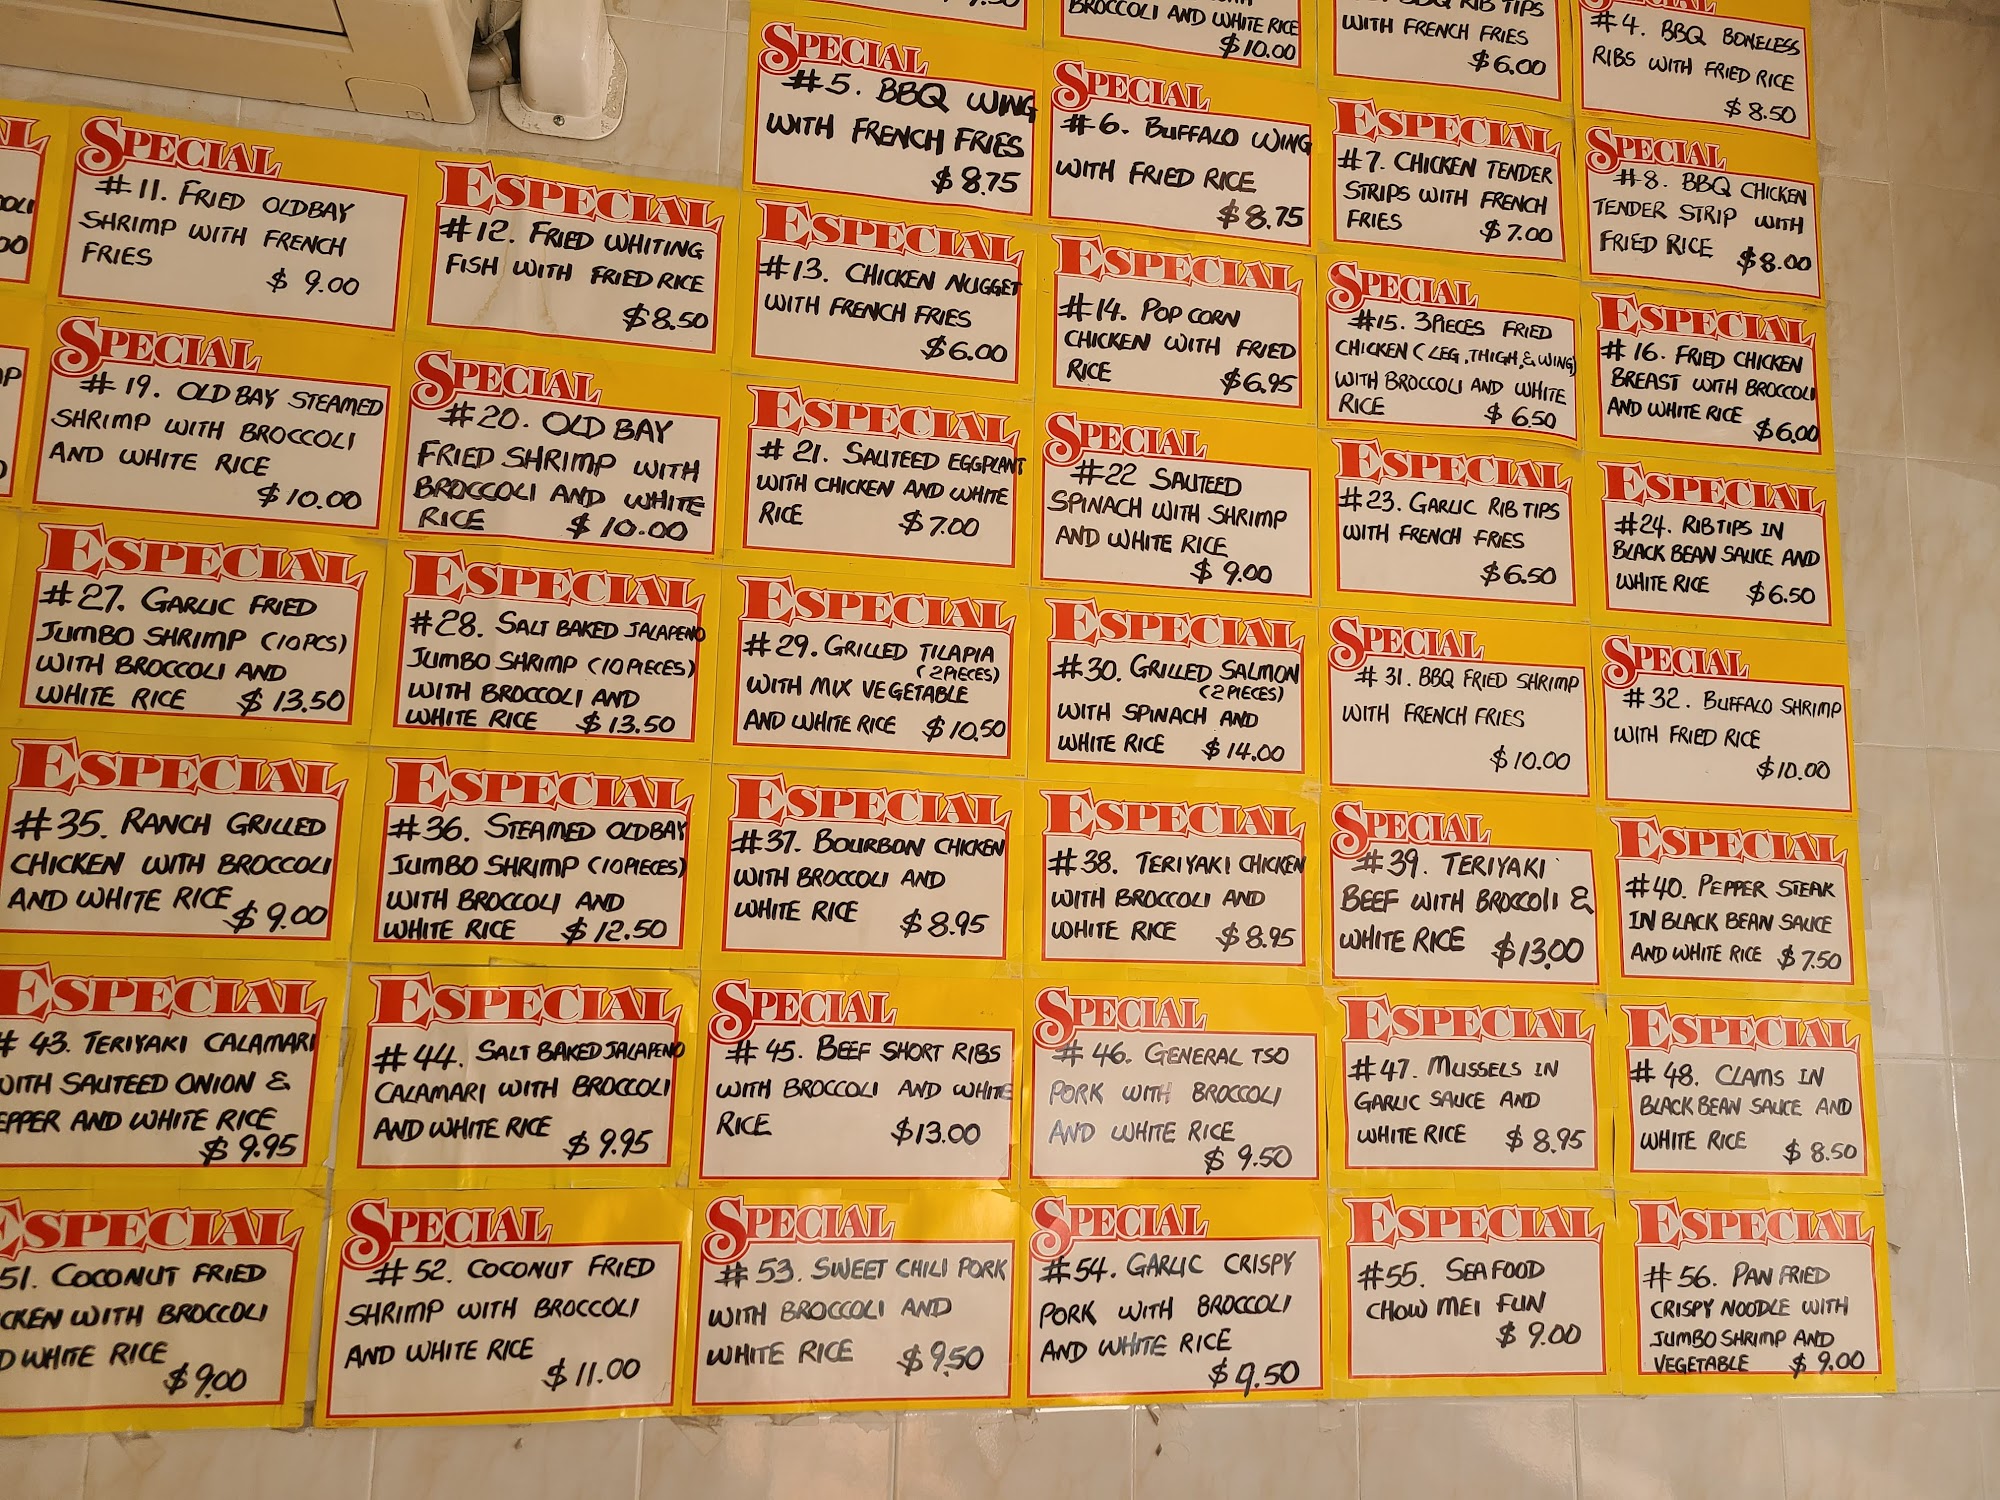 $9.50
BROCCOLI AND WHITE RICE
$10.00
BBQ RIB TIPS
WITH FRENCH FRIES
$6.00
SPECIAL
#4. BBQ BONELESS
RIBS WITH FRIED RICE
$8.50
SPECIAL
#5. BBQ WING
WITH FRENCH FRIES
$8.75
SPECIAL
#6. BUFFALO WING
WITH FRIED RICE
$8.75
ESPECIAL
#7. CHICKEN TENDER
STRIPS WITH FRENCH
FRIES $7.00
SPECIAL
#8. BBQ CHICKEN
TENDER STRIP WITH
FRIED RICE $8.00
SPECIAL
#11. FRIED OLDBAY
SHRIMP WITH FRENCH
FRIES
$9.00
ESPECIAL
#12. FRIED WHITING
FISH WITH FRIED RICE
$8.50
ESPECIAL
#13. CHICKEN NUGGET
WITH FRENCH FRIES
$6.00
ESPECIAL
#14. POP CORN
CHICKEN WITH FRIED
RICE $6.95
SPECIAL
#15. 3PIECES FRIED
CHICKEN (LEG, THIGH, & WING)
WITH BROCCOLI AND WHITE
RICE $6.50
ESPECIAL
#16. FRIED CHICKEN
BREAST WITH BROCCOLI
AND WHITE RICE $6.00
SPECIAL
#19. OLD BAY STEAMED
SHRIMP WITH BROCCOLI
AND WHITE RICE
$10.00
SPECIAL
#20. OLD BAY
FRIED SHRIMP WITH
BROCCOLI AND WHITE
RICE $10.00
ESPECIAL
#21. SAUTEED EGGPLANT
WITH CHICKEN AND WHITE
RICE $7.00
SPECIAL
#22 SAUTEED
SPINACH WITH SHRIMP
AND WHITE RICE
$9.00
ESPECIAL
#23. GARLIC RIB TIPS
WITH FRENCH FRIES
$6.50
ESPECIAL
#24. RIB TIPS IN
BLACK BEAN SAUCE AND
WHITE RICE $6.50
ESPECIAL
#27. GARLIC FRIED
JUMBO SHRIMP (10PCS)
WITH BROCCOLI AND
WHITE RICE $13.50
ESPECIAL
#28. SALT BAKED JALAPENO
JUMBO SHRIMP (10PIECES)
WITH BROCCOLI AND
WHITE RICE $13.50
ESPECIAL
#29. GRILLED TILAPIA
(2PIECES)
WITH MIX VEGETABLE
AND WHITE RICE $10.50
ESPECIAL
#30. GRILLED SALMON
(2PIECES)
WITH SPINACH AND
WHITE RICE $14.00
SPECIAL
#31. BBQ FRIED SHRIMP
WITH FRENCH FRIES
$10.00
SPECIAL
#32. BUFFALO SHRIMP
WITH FRIED RICE
$10.00
ESPECIAL
#35. RANCH GRILLED
CHICKEN WITH BROCCOLI
AND WHITE RICE
$9.00
ESPECIAL
#36. STEAMED OLDBAY
JUMBO SHRIMP (10PIECES)
WITH BROCCOLI AND
WHITE RICE $12.50
ESPECIAL
#37. BOURBON CHICKEN
WITH BROCCOLI AND
WHITE RICE $8.95
ESPECIAL
#38. TERIYAKI CHICKEN
WITH BROCCOLI AND
WHITE RICE $8.95
SPECIAL
#39. TERIYAKI
BEEF WITH BROCCOLI &
WHITE RICE $13.00
ESPECIAL
#40. PEPPER STEAK
IN BLACK BEAN SAUCE
AND WHITE RICE $7.50
ESPECIAL
# 43. TERIYAKI CALAMARI
WITH SAUTEED ONION &
PEPPER AND WHITE RICE
$9.95
ESPECIAL
#44. SALT BAKED JALAPENO
CALAMARI WITH BROCCOLI
AND WHITE RICE $9.95
SPECIAL
#45. BEEF SHORT RIBS
WITH BROCCOLI AND WHITE
RICE $13.00
SPECIAL
#46. GENERAL TSO
PORK WITH BROCCOLI
AND WHITE RICE
$9.50
ESPECIAL
#47. MUSSELS IN
GARLIC SAUCE AND
WHITE RICE $8.95
ESPECIAL
#48. CLAMS IN
BLACK BEAN SAUCE AND
WHITE RICE $8.50
ESPECIAL
51. COCONUT FRIED
CKEN WITH BROCCOLI
D WHITE RICE
$9.00
SPECIAL
#52. COCONUT FRIED
SHRIMP WITH BROCCOLI
AND WHITE RICE
$11.00
SPECIAL
#53. SWEET CHILI PORK
WITH BROCCOLI AND
WHITE RICE $9.50
SPECIAL
#54. GARLIC CRISPY
PORK WITH BROCCOLI
AND WHITE RICE
$9.50
ESPECIAL
#55. SEAFOOD
CHOW MEI FUN
$9.00
ESPECIAL
#56. PAN FRIED
CRISPY NOODLE WITH
JUMBO SHRIMP AND
VEGETABLE $9.00